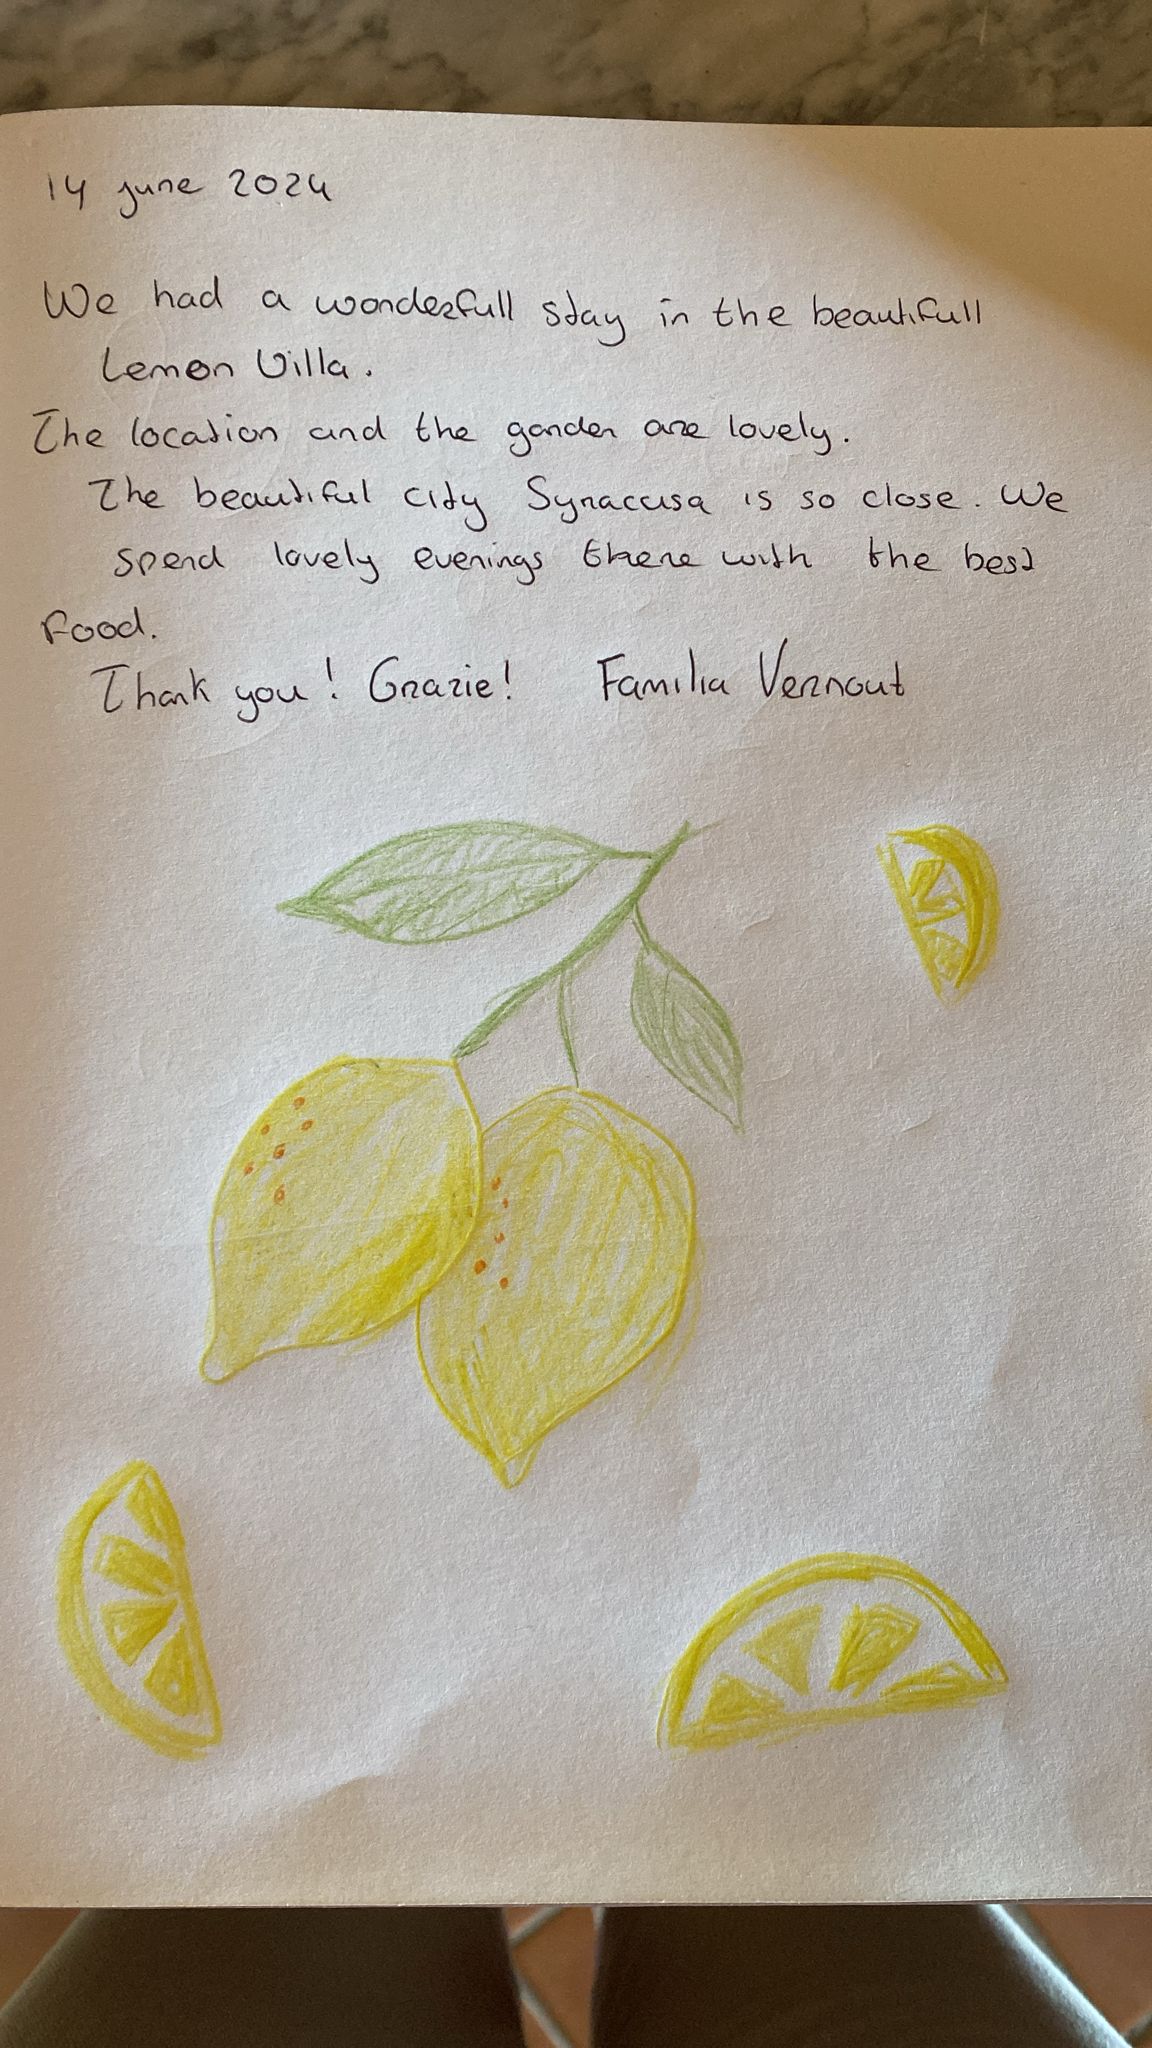 14 june 2024
We had a wonderfull stay in the beautifull
Lemon Villa.
The location and the garden are lovely.
The beautiful city Syracusa is so close. We
spend lovely evenings there with the best
Food.
Thank you! Grazie! Familia Vernout